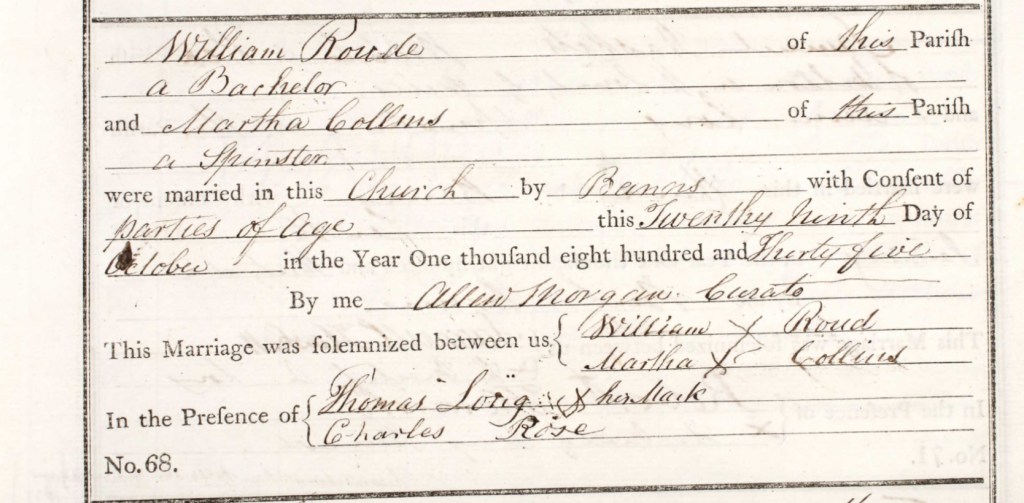 William Roude of this Parish
a Bachelor
and Martha Collins of this Parish
a Spinster
were married in this Church by Banns with Consent of
parties of age this Twenthy Ninth Day of
October in the Year One thousand eight hundred and Thirty five
By me Allen Morgan Curate
This Marriage was solemnized between us { William X Roud
Martha X Collins
In the Presence of { Thomas X her Mark
Charles Rose
No. 68.